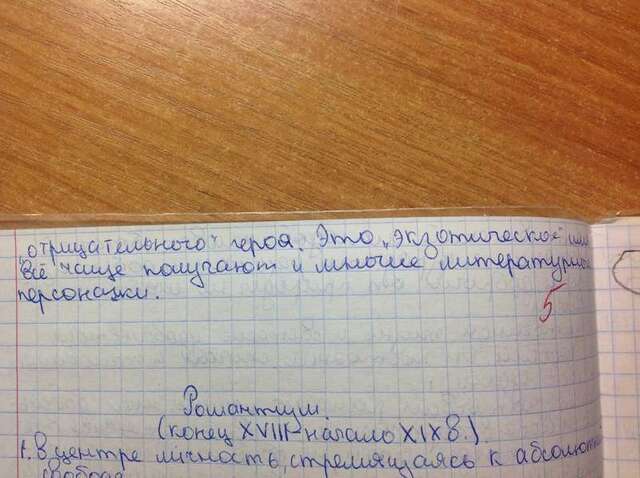 „отрицательного" героя. Это „экзотическое" имя
всё чаще получают и многие литературные
персонажи.
5
Романтизм.
(конец XVIII – начало XIX в.)
1. В центре личность, стремящаясь к абсолютн
свобода